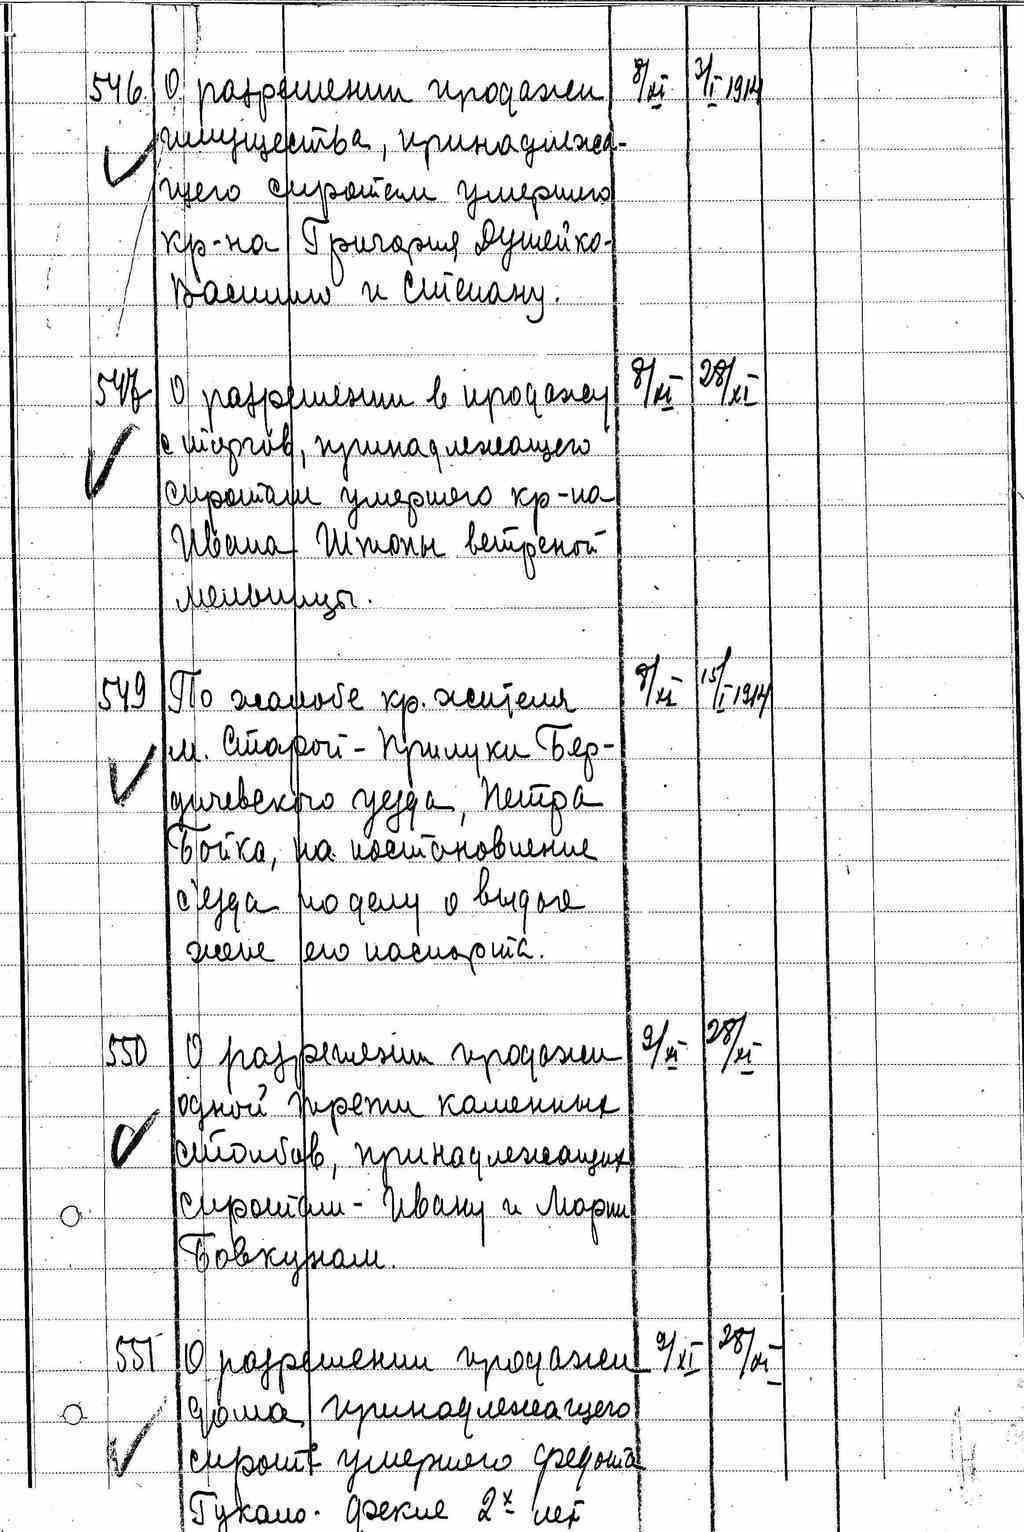 546. О разрешении продажи 8/XI 3/I 1914
имущества, принадлежа-
щего сиротам умершего
кр-на Григория Душейко-
Василию и Степану.
547 О разрешении в продажу 8/XI 28/XI
с торгов, принадлежащего
сиротам умершего кр-на
Ивана ветреной
мельницы.
549 По жалобе кр. жителя 8/XI 15/I 1914
м. Старой-Прилуки Бер-
дичевского уезда, Петра
Бойка, на постановление
с'езда по делу о выдаче
жене его паспорта.
550 О разрешении продажи 9/XI 28/XI
одной трети каменных
столбов, принадлежащих
сиротам - Ивану и Марии
Бовкунам.
551 О разрешении продажи 9/XI 28/XI
дома, принадлежащего
сироте умершего Федота
Гукало - Фекле 2х лет